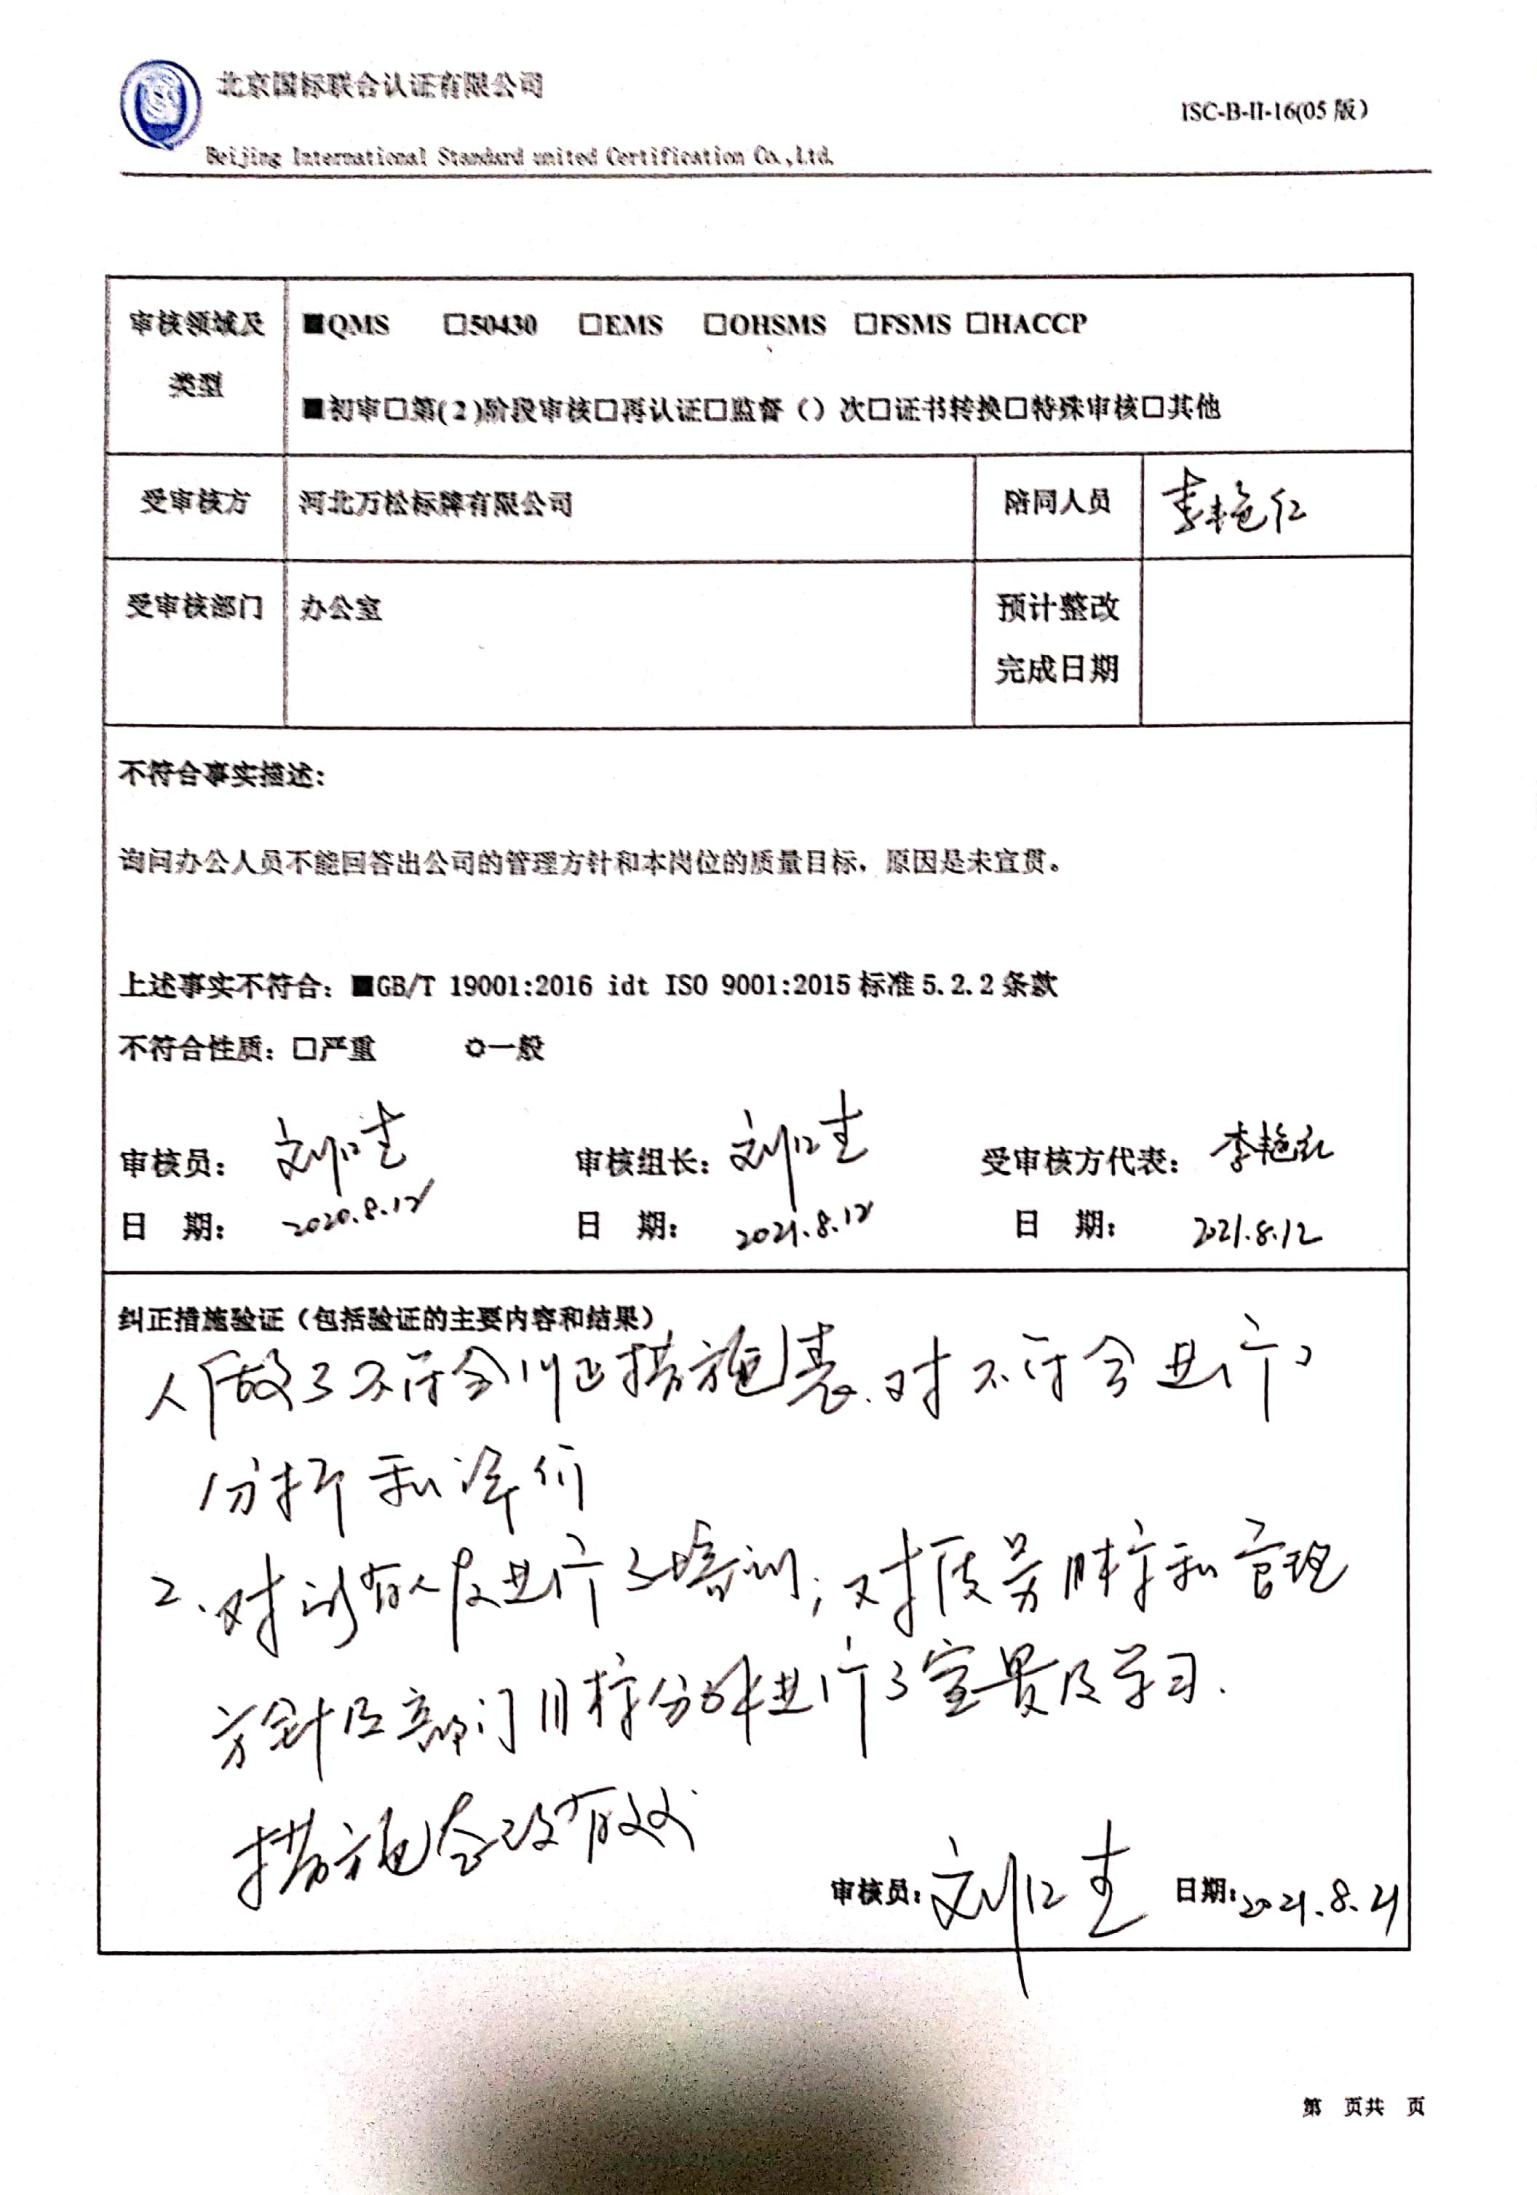 北京国标联合认证有限公司
ISC-B-II-16(05 版)
Beijing International Standard united Certification Co.,Ltd.
审核领域及类型
■QMS □50430 □EMS □OHSMS □FSMS □HACCP
■初审□第(2)阶段审核□再认证□监督（）次□证书转换□特殊审核□其他
受审核方 河北万松标牌有限公司 陪同人员 李艳红
受审核部门 办公室 预计整改
完成日期
不符合事实描述:
询问办公人员不能回答出公司的管理方针和本岗位的质量目标，原因是未宣贯。
上述事实不符合：■GB/T 19001:2016 idt ISO 9001:2015 标准 5.2.2 条款
不符合性质：□严重 ✩一般
审核员： 审核组长： 受审核方代表： 李艳红
日 期： 2020.8.12 日 期： 2021.8.12 日 期： 2021.8.12
纠正措施验证（包括验证的主要内容和结果）
做了不符合纠正措施表.对不符合进行
分析和评价
2.对所有人员进行了培训；对质量目标和管理
方针及部门目标分解进行了宣贯及学习.
措施 有效
审核员: 日期: 2021.8.21
第 页共 页